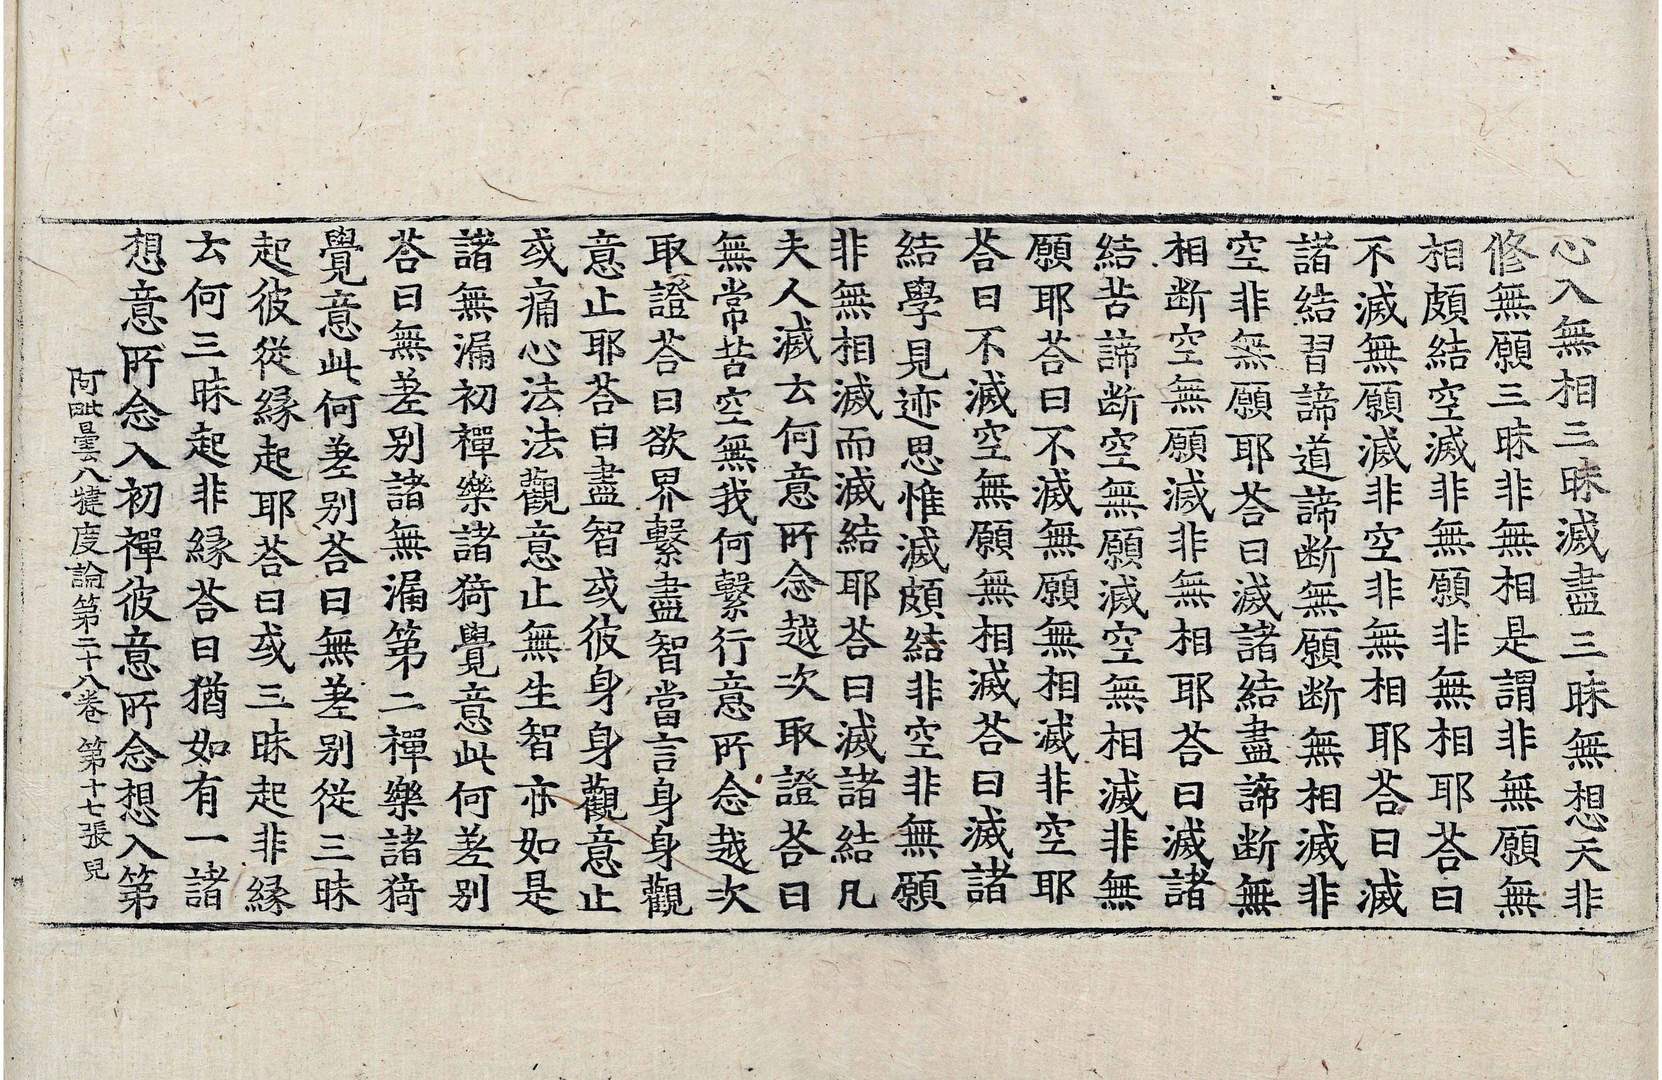 心入無相三昧滅盡三昧無想天非
修無願三昧非無相是謂非無願無
相頗結空滅非無願非無相耶荅曰
不滅無願滅非空非無相耶荅曰滅
諸結習諦道諦断無願断無相滅非
空非無願耶荅曰滅諸結盡諦断無
相断空無願滅非無相耶荅曰滅諸
結苦諦断空無願滅空無相滅非無
願耶荅曰不滅無願無相滅非空耶
荅曰不滅空無願無相滅荅曰滅諸
結學見迹思惟滅頗結非空非無願
非無相滅而滅結耶荅曰滅諸結凡
夫人滅去何意所念越次取證荅曰
無常苦空無我何繫行意所念越次
取證荅曰欲界繫盡智當言身身觀
意止耶荅曰盡智或彼身身觀意止
或痛心法法觀意止無生智亦如是
諸無漏初禪樂諸猗覺意此何差别
荅曰無差别諸無漏第二禪樂諸猗
覺意此何差别荅曰無差别從三昧
起彼從緣起耶荅曰或三昧起非緣
去何三昧起非緣荅曰猶如有一諸
想意所念入初禪彼意所念想入第
阿毗曇八犍度論第二十八卷 第十七張 兒